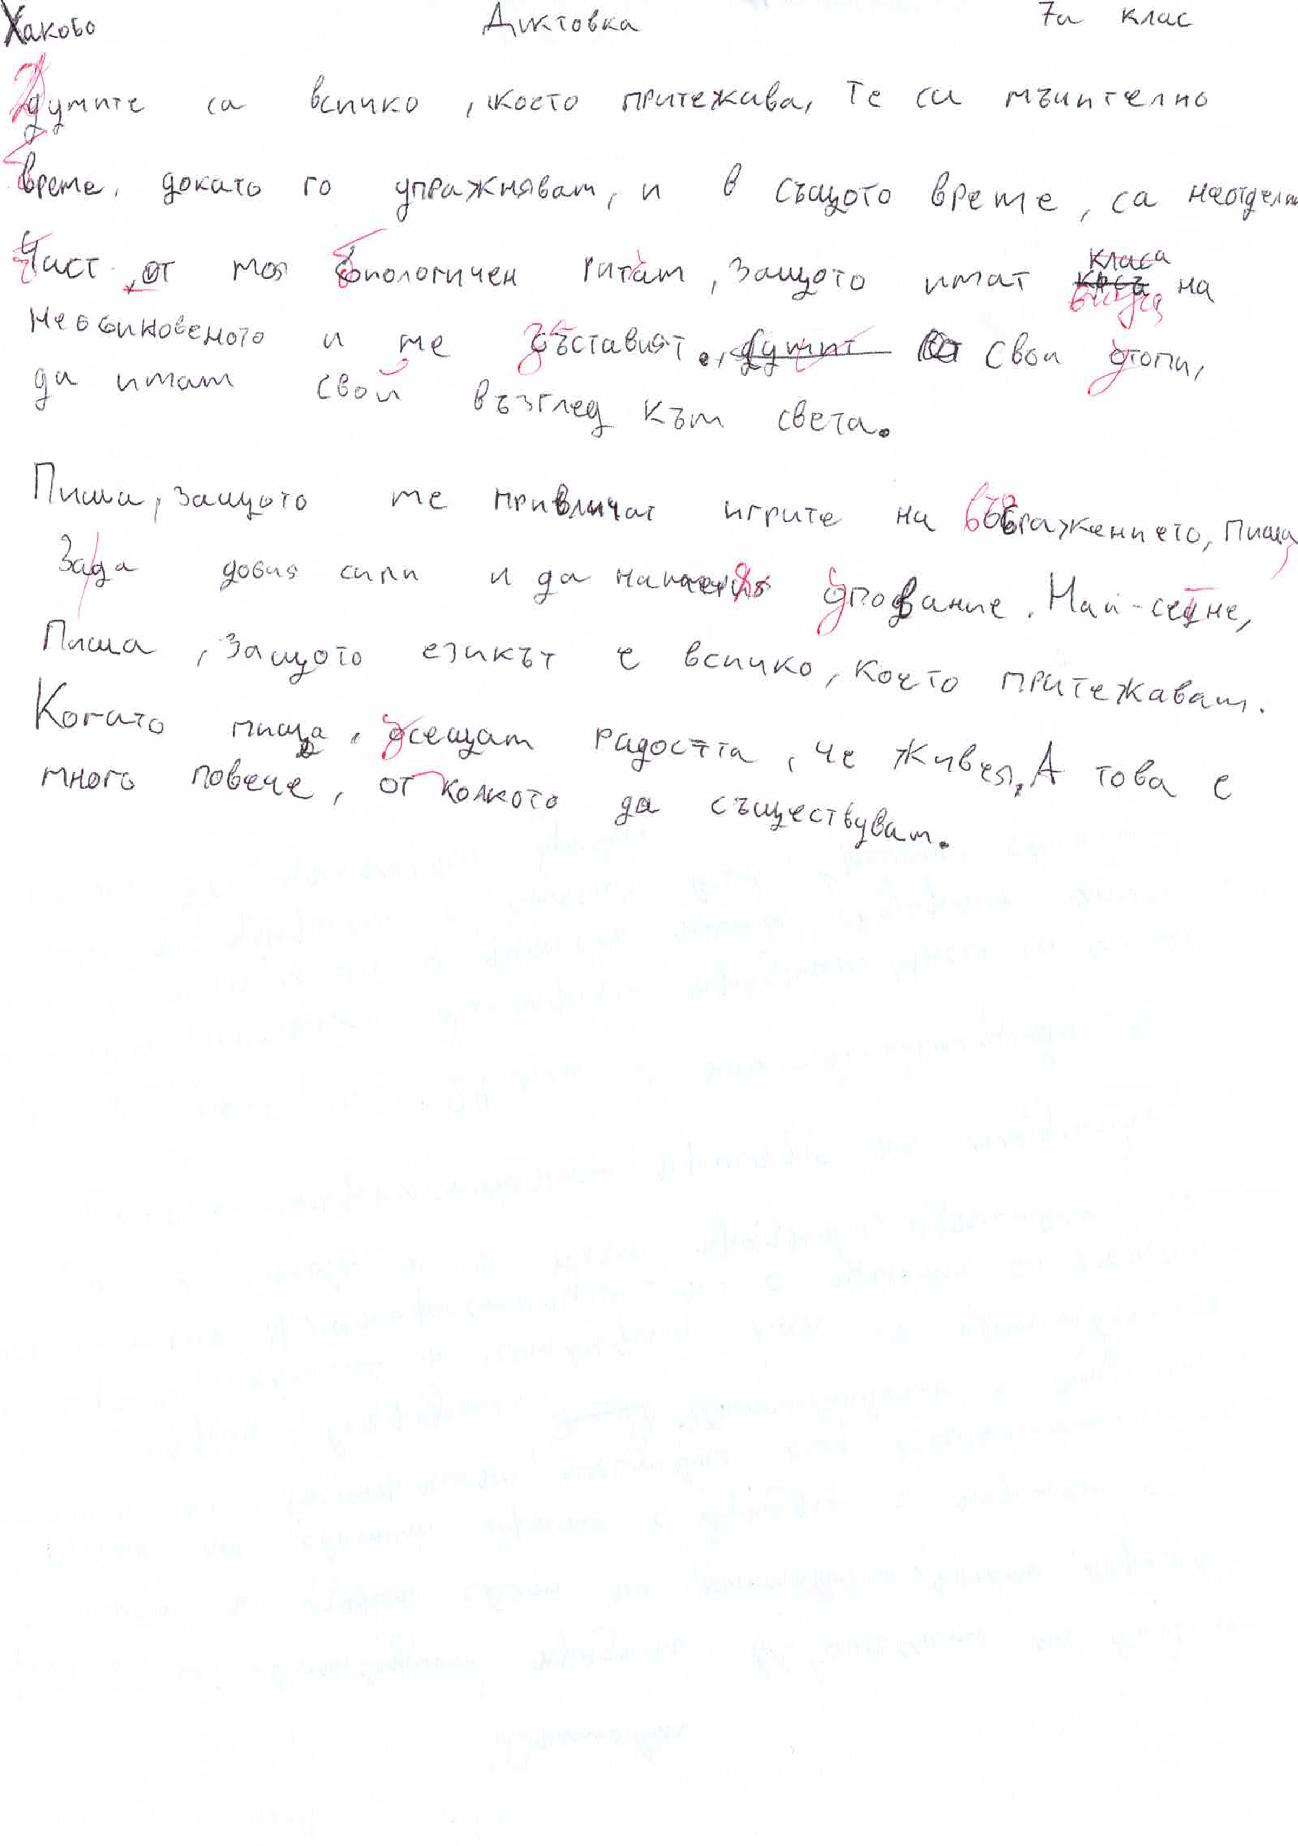 Хаково Диктовка 7а клас
думите са всичко, което притежава, Те са мъчително
време, докато го упражнявам, и в същото време, са неотделн
част, от моя биологичен ритам, защото имат класа на
необикновеното и ме съставят, свои стопи,
да имат свой възглед към света.
Пиша, защото ме привличат игрите на въображението, Пиша
Зада довия сили и да опование. Най-сетне,
Пиша, защото езикът е всичко, което притежавам.
Когато пиша, усещам радостта, че живея, А това е
много повече, от колкото да съществувам.